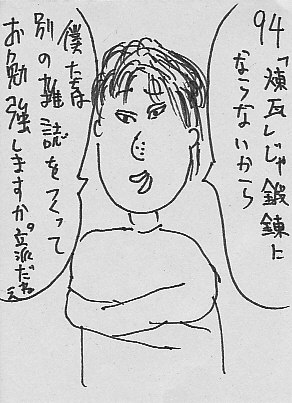 94「煉瓦」じゃ鍛錬に
ならないから
僕たちは
別の雑誌をつくって
お勉強しますか。立派だねえ